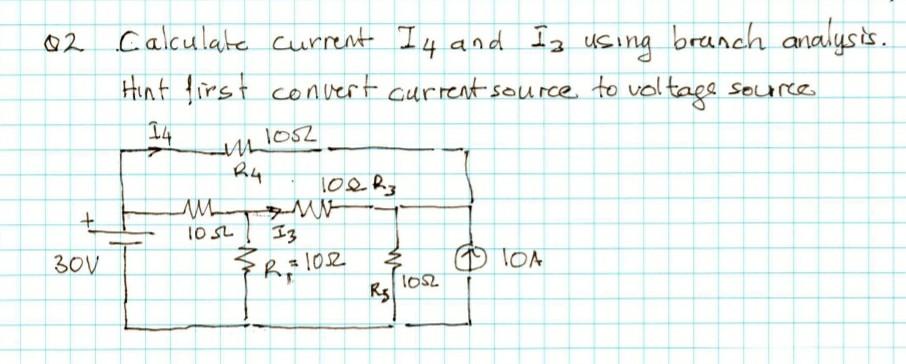 Q2 Calculate current I4 and I3 using branch analysis.
Hint first convert current source to voltage source
I4
10Ω
R4
10Ω R3
+
10Ω
I3
30V
R1=10Ω
10A
R5
10Ω